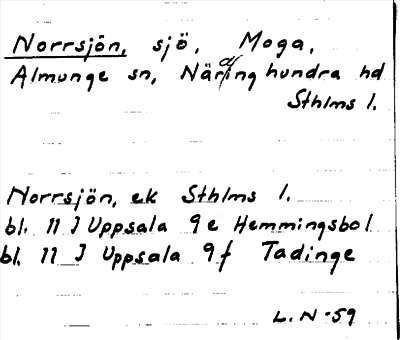 Norrsjön, sjö, Moga,
Almunge sn, Närdinghundra hd
Sthlms l.
Norrsjön, ek Sthlms l.
bl. 11 I Uppsala 9e Hemmingsbol
bl. 11 I Uppsala 9f Tadinge
L.N-59